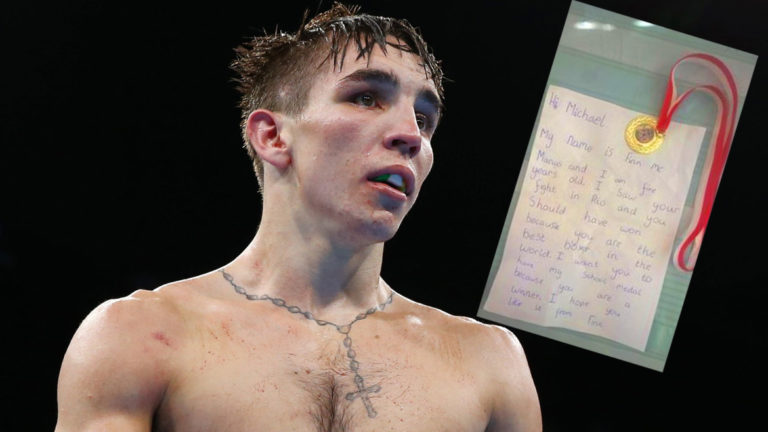 Hi Michael
My Name is Finn Mc
Manus and I am five
years old. I saw your
fight in Rio and you
Should have won
because you are the
best boxer in the
world. I want you to
have my School medal
because you are a
winner. I hope you
like it from Finn